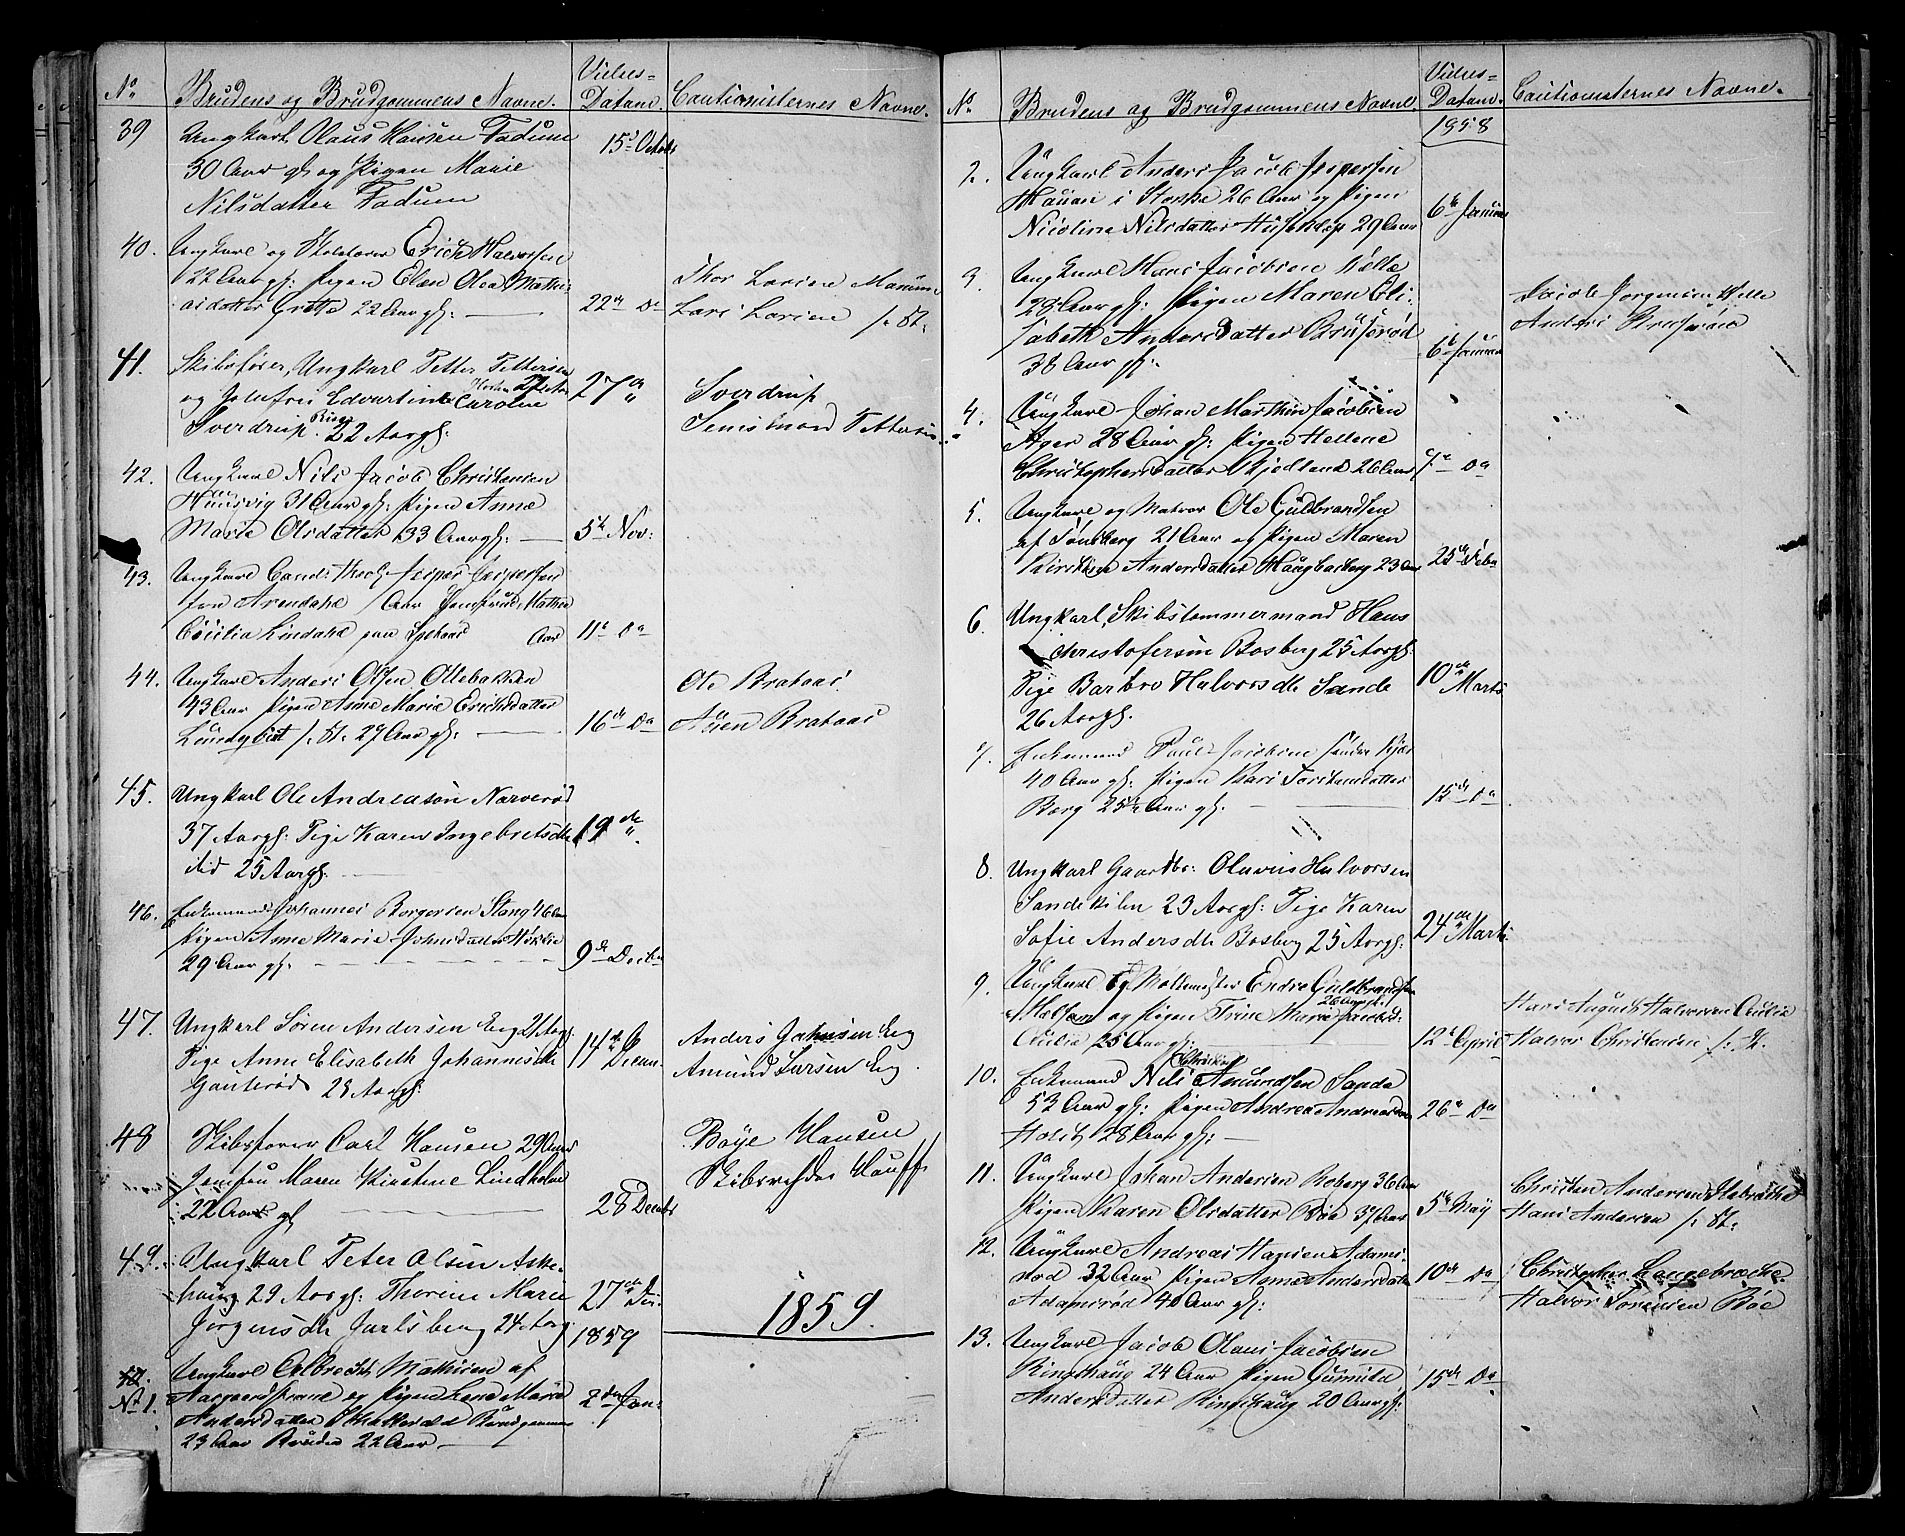 No
Brudens og Brudgommens Navne.
Vielses-
Datum.
Cautionisternes Navne.
39
Ungkarl Olaus Hansen Fadum
30 Aar gl og Pigen Marie
Nilsdatter Fadum
15d October
40.
Ungkarl og Erich Halvorsen
22 Aar gl: Pigen Elen Olea Mathi-
asdatter Grette 22 Aar gl:
22de Do
Thor Larsen
Lars Larsen
41.
Skibsfører, Ungkarl Petter Pettersen
27 Aar
og Jomfrue Edvartine Caroline
Sverdrup 22 Aargl:
27de "
Sverdrup
42.
Ungkarl Nils Jacob Christensen
Huusvig 31 Aar gl: Pigen Anne
Marie Olsdatter 33 Aar gl:
5te Nov:
43.
Ungkarl Cand: Jesper Jespersen
fra Arendahl Aar Jomfrue
Cecilia Lindahl paa Aar
11te Do
44.
Ungkarl Anders Olsen Ollebakken
43 Aar Pigen Anne Marie Erichsdatter
29 Aar gl:
16de Do
Ole Brataas
Brataas
45.
Ungkarl Ole Andreasøn Narverød
37 Aargl: Pige Karen Ingebretsdtr
ibid 25 Aargl.
19de "
46.
Enkemand Johannes Borgersen Stang 46 Aar
Pigen Anne Marie Johnsdatter
29 Aar gl.
9de Decbr
47.
Ungkarl Søren Andersen Eeg
Pige Anne Elisabeth Johannesdtr
Gauterød 23 Aargl:
14de
Anders Johnsen Eeg
Amund Larsen Eeg
48
Skibsfører Carl Hansen 29 Aar
Jomfru Maren Kirstine Lindholm
22 Aar gl
28 Decbr
Boye Hansen
Skibsrheder Hauff
49.
Ungkarl Peter Olsen Aske-
houg 29 Aargl: Thorine Marie
Jørgensdtr Jarlsberg 24 Aarg
27de
1859
1859.
No 1.
Ungkarl Albrecht Mathisen af
Aasgaardstrand og Pigen Lene Marie
Andersdatter Brudgommen
23 Aar Bruden 22 Aar
2den Jan:
No
Brudens og Brudgommens Navne
Vielses-
Datum.
Cautionisternes Navne.
1958
2.
Ungkarl Anders Jacob Jespersen
Hauan i Stokke 26 Aar og Pigen
Nicoline Nilsdatter 29 Aar
6te Januar
3.
Ungkarl Hans Jacobsen Velle
28 Aar gl: Pigen Maren Eli-
sabeth Andersdatter Bruserød
38 Aar gl:
6te Januar
Jacob Jørgensen Velle
Anders
4.
Ungkarl Johan Marthin Jacobsen
Ager 28 Aar gl: Pigen Hellene
Christophersdatter 26 Aar
7de Do
5.
Ungkarl og Matros Ole Guldbrandsen
af Tønsberg 21 Aar og Pigen Maren
Kirstine Andersdatter Haugbacberg 23 Aar
25de Febr
6.
Ungkarl, Skibstømmermand Hans
Christofersøn Bosberg 25 Aargl.
Pige Barbro Halvorsdtr Sande
26 Aargl.
10de Marts
7.
Enkemand Paul Jacobsen
40 Aar gl: Pigen Kari Torstensdatter
Borg 25 Aar gl:
15de Do
8.
Ungkarl Gaardbr: Olavus Halvorsen
Sandekilen 23 Aargl: Pige Karen
Sofie Andersdtr Bosberg 25 Aargl:
24de Marts
9.
Ungkarl og Møllemester Endre Guldbrandsen
26 Aar gl.
og Pigen Trine Marie Jacobsd:
Cecilia 25 Aar gl:
12te April
Hans August Halvorsen Cecilia
Halvor Christensen
10.
Enkemand Nils Amundsen Sande
53 Aar gl: Pigen Andrea Andreasdtr
Holst 28 Aar gl:
26de Do
11.
Ungkarl Johan Andersen Roberg 36 Aar
Pigen Karen Olsdatter Bøe 37 Aar
5te May
Christen Andersen
Hans Andersen
12.
Ungkarl Andreas Hansen Adams-
rød 32 Aar Pigen Anne Andersdatter
Adamsrød 40 Aar gl:
10de Do
Christopher Langebrecke
Halvor Sørensen Bøe
13.
Ungkarl Jacob Olaus Jacobsen
Ringshaug 24 Aar Pigen Gunnild
Andersdatter Ringshaug 20 Aar gl:
15de Do